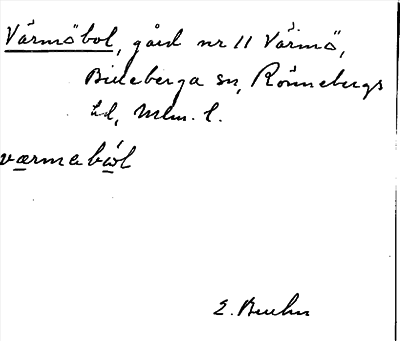 Värmöbol, gård nr 11 Värmö,
Billeberga sn, Rönnebergs
hd, Mlm. l.
värmabol
E. Bruhn